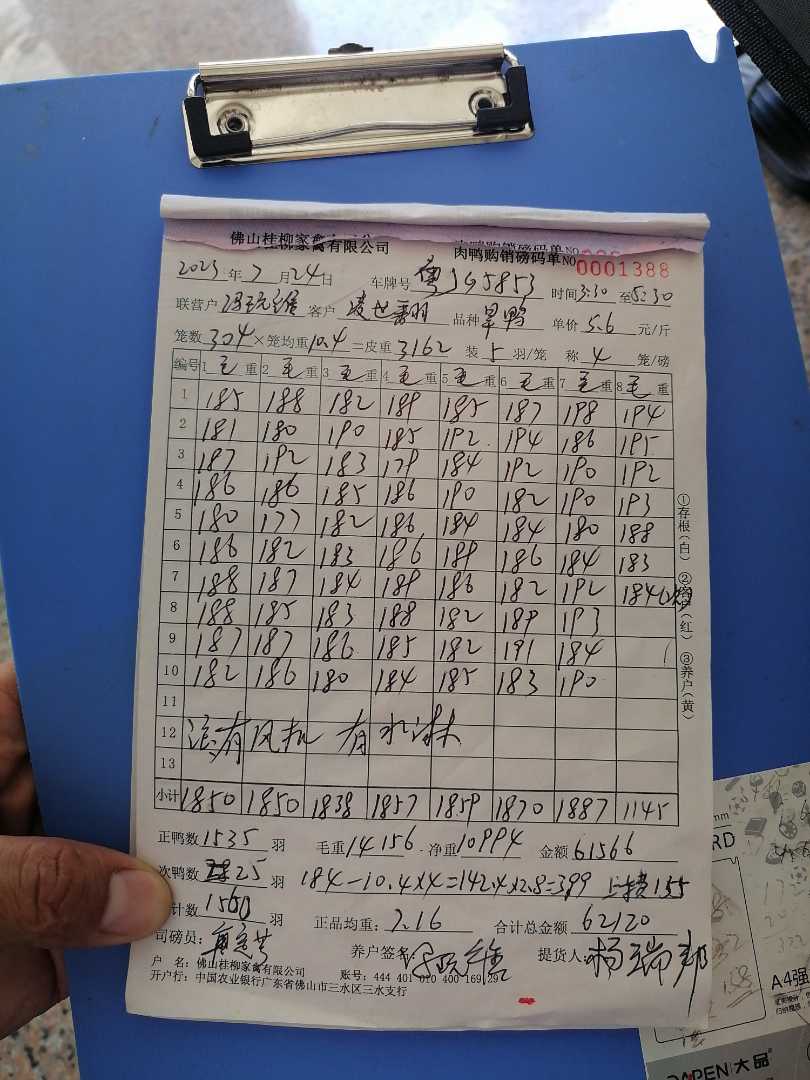 佛山桂柳家禽有限公司 肉鸭购销磅码单NO 0001388
2023年7月24日 车牌号 粤J65853 时间3:30至5:30
联营户 客户 凌世翻 品种 旱鸭 单价5.6元/斤
笼数304×笼均重10.4=皮重3162 装5羽/笼 称4笼/磅
编号 1毛重 2毛重 3毛重 4毛重 5毛重 6毛重 7毛重 8毛重
1 185 188 182 189 185 187 198 194
2 181 180 190 185 192 194 186 195
3 187 192 183 179 184 192 190 192
4 186 186 185 186 190 182 190 193
5 180 177 182 186 184 184 180 188
6 186 182 183 186 189 186 184 183
7 188 187 184 189 186 182 192 184
8 188 185 183 188 182 189 193
9 187 187 186 185 182 191 184
10 182 186 180 184 185 183 190
11
12 没有风机 有水淋
13
小计 1850 1850 1838 1857 1859 1870 1887 1145
正鸭数1535羽 毛重14156 净重10994 金额61566
次鸭数 25羽 184-10.4×4=142.4×2.8=399 155
计数1560羽 正品均重:7.16 合计总金额62120
司磅员: 养户签名: 提货人:杨瑞邦
户 名:佛山桂柳家禽有限公司 账号:444 401 010 400 169 29
开户行:中国农业银行广东省佛山市三水区三水支行
①存根(白) ②客户(红) ③养户(黄)
A4强
DAPEN 大品